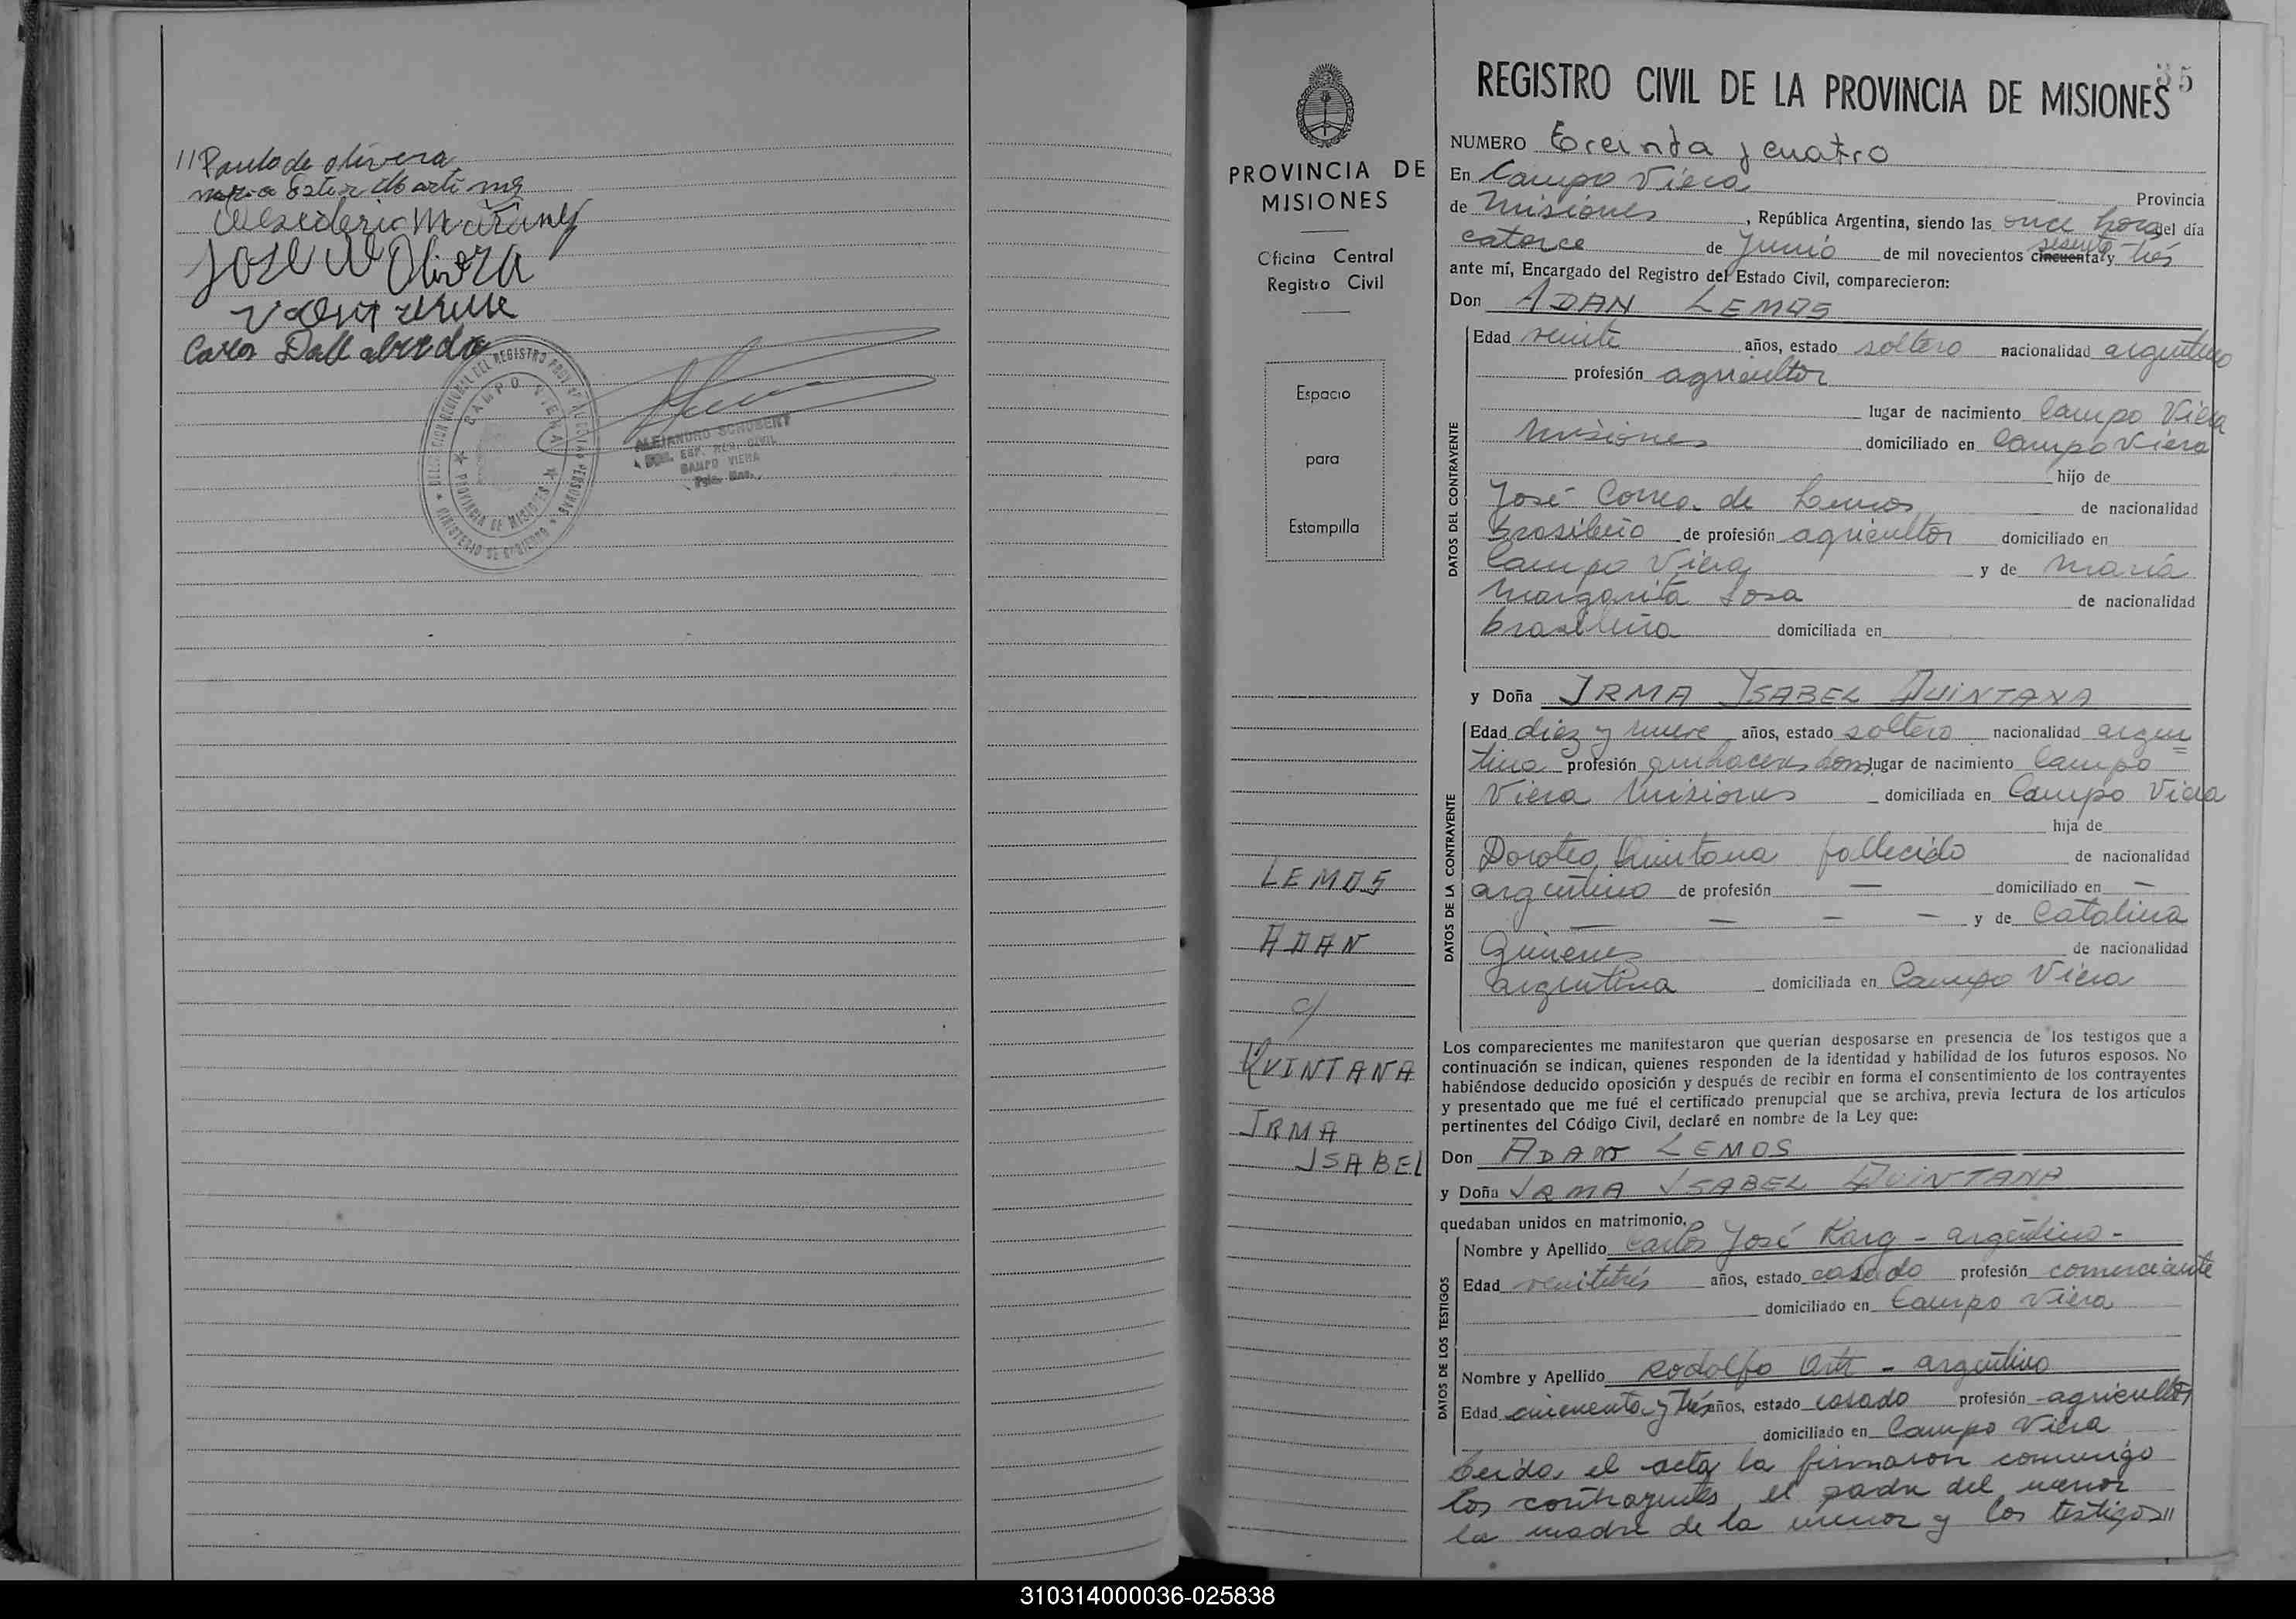 // Paulo de olivera
maria Ester Martinez
Desiderio Martinez
JOSE de OliveRA
Carlos Dallabrida
DELEGACION REGIONAL DEL REGISTRO PROV. DE LAS PERSONAS
CAMPO VIERA
PROVINCIA DE MISIONES
MINISTERIO DE GOBIERNO
ALEJANDRO SCHUBERT
REG. CIVIL
CAMPO VIERA
Pcia. Mnes.
PROVINCIA DE
MISIONES
Oficina Central
Registro Civil
Espacio
para
Estampilla
LEMOS
ADAN
c/
QUINTANA
IRMA
ISABEL
35
REGISTRO CIVIL DE LA PROVINCIA DE MISIONES
NUMERO Treinta y cuatro
En Campo Viera Provincia
de Misiones, República Argentina, siendo las once horas del día
catorce de Junio de mil novecientos cincuenta sesenta y tres
ante mí, Encargado del Registro del Estado Civil, comparecieron:
Don ADAN LEMOS
DATOS DEL CONTRAYENTE
Edad veinte años, estado soltero nacionalidad argentino
profesión agricultor
lugar de nacimiento Campo Viera
Misiones domiciliado en Campo Viera
hijo de
José Correa de Lemos de nacionalidad
brasileño de profesión agricultor domiciliado en
Campo Viera y de María
Margarita Sosa de nacionalidad
brasileña domiciliada en
y Doña IRMA YSABEL QUINTANA
DATOS DE LA CONTRAYENTE
Edad diez y nueve años, estado soltera nacionalidad argen=
tina profesión quehaceres dom. lugar de nacimiento Campo
Viera Misiones domiciliada en Campo Viera
hija de
Doroteo Quintana fallecido de nacionalidad
argentino de profesión — domiciliado en —
— — — y de Catalina
Gimenes de nacionalidad
argentina domiciliada en Campo Viera
Los comparecientes me manifestaron que querían desposarse en presencia de los testigos que a
continuación se indican, quienes responden de la identidad y habilidad de los futuros esposos. No
habiéndose deducido oposición y después de recibir en forma el consentimiento de los contrayentes
y presentado que me fué el certificado prenupcial que se archiva, previa lectura de los artículos
pertinentes del Código Civil, declaré en nombre de la Ley que:
Don ADAN LEMOS
y Doña IRMA YSABEL QUINTANA
quedaban unidos en matrimonio.
DATOS DE LOS TESTIGOS
Nombre y Apellido Carlos José Karg - argentino -
Edad veintitrés años, estado casado profesión comerciante
domiciliado en Campo Viera
Nombre y Apellido Rodolfo - argentino
Edad cincuenta y tres años, estado casado profesión agricultor
domiciliado en Campo Viera
Leida el acta la firmaron conmigo
los contrayentes, el padre del menor
la madre de la menor y los testigos //
310314000036-025838